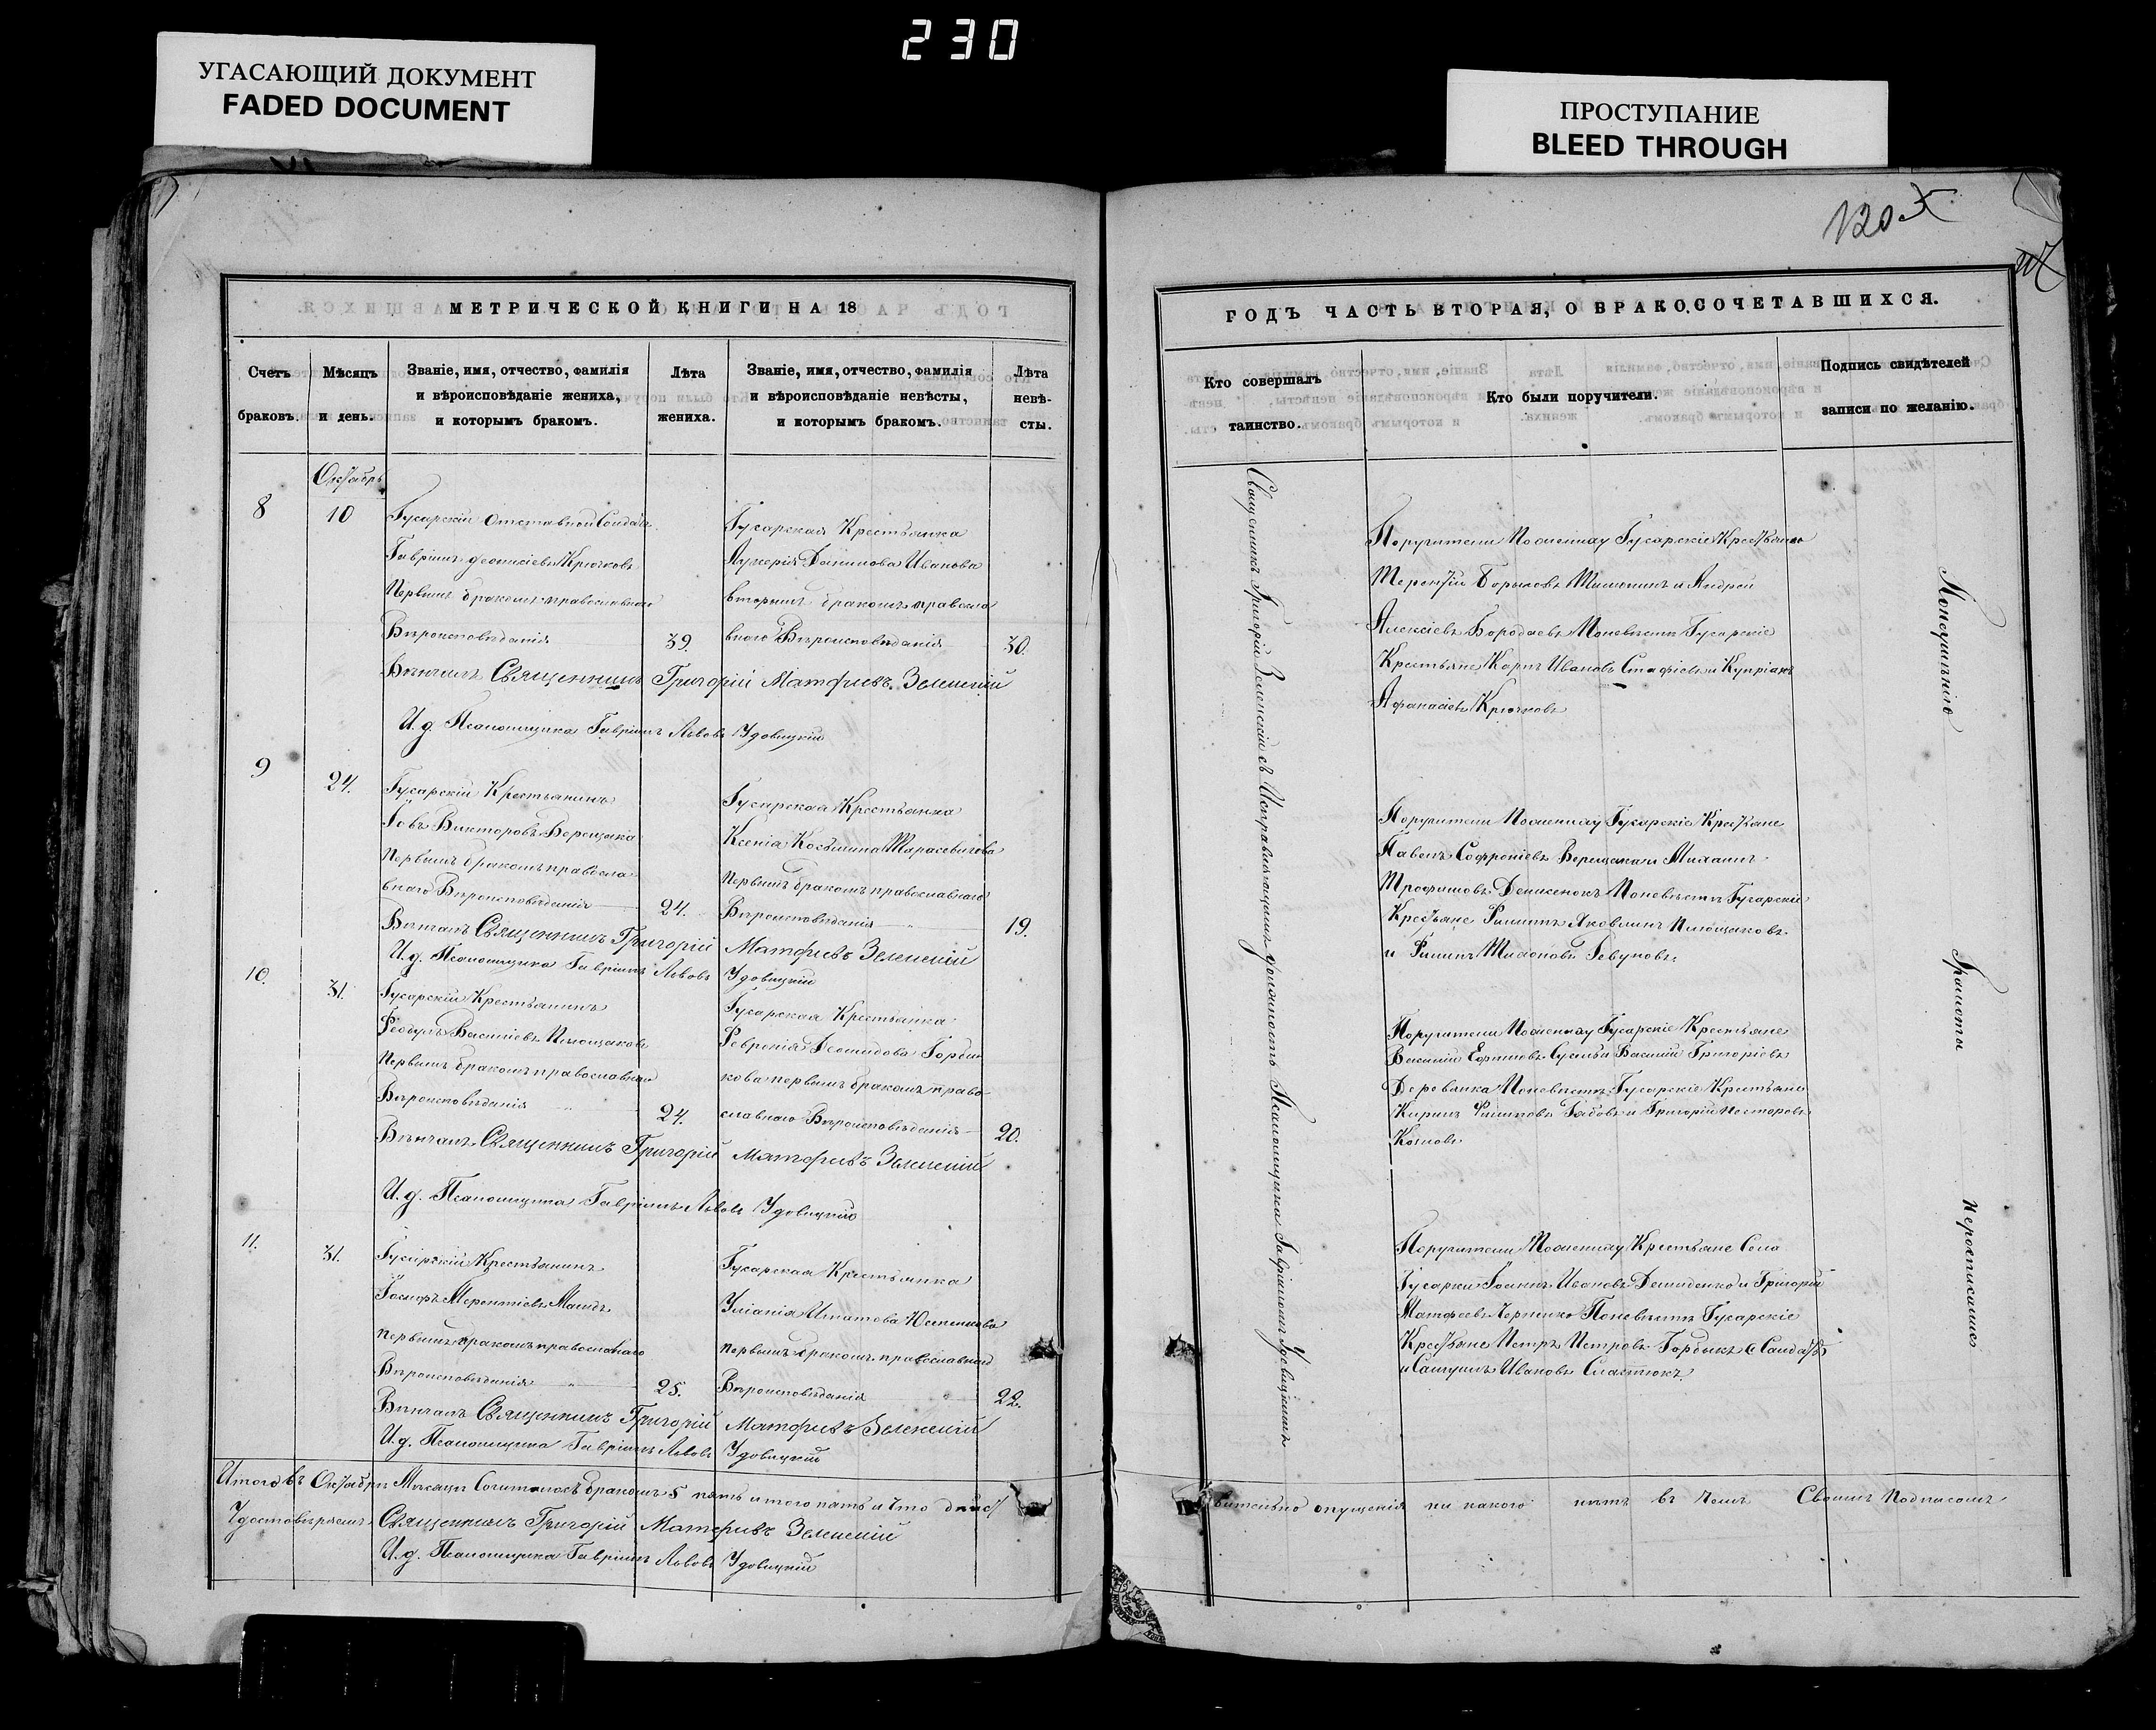 230
УГАСАЮЩИЙ ДОКУМЕНТ
FADED DOCUMENT
ПРОСТУПАНИЕ
BLEED THROUGH
120
МЕТРИЧЕСКОЙ КНИГИ НА 18
Счетъ браковъ.
Мѣсяцъ и день.
Званіе, имя, отчество, фамилія и вѣроисповѣданіе жениха, и которымъ бракомъ.
Лѣта жениха.
Званіе, имя, отчество, фамилія и вѣроисповѣданіе невѣсты, и которымъ бракомъ.
Лѣта невѣ-сты.
Октябрь
8
10
Гусарскій Отставной Солдатъ
Гавріилъ Крючковъ
Первымъ бракомъ православнаго
Вѣроисповѣданія
39.
Гусарская Крестьянка
Лукерія Данилова Иванова
вторымъ бракомъ правосла
внаго Вѣроисповѣданія
30.
Вѣнчалъ Священникъ Григорій Матфіевъ Зеленскій
И. д. Псаломщика Гавріилъ Львовъ Удовицкій
9
24.
Гусарскій Крестьянинъ
Іовъ Викторовъ Верещака
Первымъ бракомъ правосла
внаго Вѣроисповѣданія
24.
Гусарская Крестьянка
Ксенія Козьмина Тарасевичова
Первымъ бракомъ православнаго
Вѣроисповѣданія
19.
Вѣнчалъ Священникъ Григорій Матфіевъ Зеленскій
И. д. Псаломщика Гавріилъ Львовъ Удовицкій
10.
31.
Гусарскій Крестьянинъ
Феодулъ Василіевъ Плющаковъ
Первымъ бракомъ православнаго
Вѣроисповѣданія
24.
Гусарская Крестьянка
Февронія Демидова Горди
кова первымъ бракомъ право
славнаго Вѣроисповѣданія
20.
Вѣнчалъ Священникъ Григорій Матфіевъ Зеленскій
И. д. Псаломщика Гавріилъ Львовъ Удовицкій
11.
31.
Гусарскій Крестьянинъ
Іосифъ Терентіевъ
первымъ бракомъ православнаго
Вѣроисповѣданія
25.
Гусарская Крестьянка
Уліанія Игнатова
первымъ бракомъ православнаго
Вѣроисповѣданія
22.
Вѣнчалъ Священникъ Григорій Матфіевъ Зеленскій
И. д. Псаломщика Гавріилъ Львовъ Удовицкій
Итого въ Октябрѣ Мѣсяцѣ Сочиталось бракомъ 5 пять итого пять и что дѣйст
Удостовѣряемъ Священникъ Григорій Матфіевъ Зеленскій
И. д. Псаломщика Гавріилъ Львовъ Удовицкій
ГОДЪ ЧАСТЬ ВТОРАЯ, О БРАКОСОЧЕТАВШИХСЯ.
Кто совершалъ таинство.
Кто были поручители.
Подпись свидѣтелей записи по желанію.
Священникъ Григорій Зеленскій съ Исправляющимъ должность Псаломщика Гавріиломъ Удовицкимъ
Поручители По женихѣ Гусарскіе Крестьяне
Терентій Борисовъ и Андрей
Алексіевъ Бородаевъ По невѣстѣ Гусарскіе
Крестьяне Карпъ Ивановъ и Кипріанъ
Афанасіевъ Крючковъ
Поручители По женихѣ Гусарскіе Крестьяне
Павелъ Софроніевъ Верещака и Михаилъ
Трофимовъ Денисенокъ По невѣстѣ Гусарскіе
Крестьяне Филиппъ Яковлинъ Плющаковъ
и Филиппъ
Поручители По женихѣ Гусарскіе Крестьяне
Василій Ефимовъ и Василій Григоріевъ
Деревянка По невѣстѣ Гусарскіе Крестьяне
Кирилъ Филиповъ и Григорій Несторовъ
Козловъ
Поручители По женихѣ Крестьяне Села
Гусарки Іоаннъ Ивановъ Демиденко и Григорій
Матфеевъ По невѣстѣ Гусарскіе
Крестьяне Петръ Петровъ Гордыкъ Солдатъ
и Самуилъ Ивановъ Сластюкъ
По незнанію
Грамоты
не росписались
вительно опущенія ни какого нѣтъ въ томъ Своимъ Подписомъ